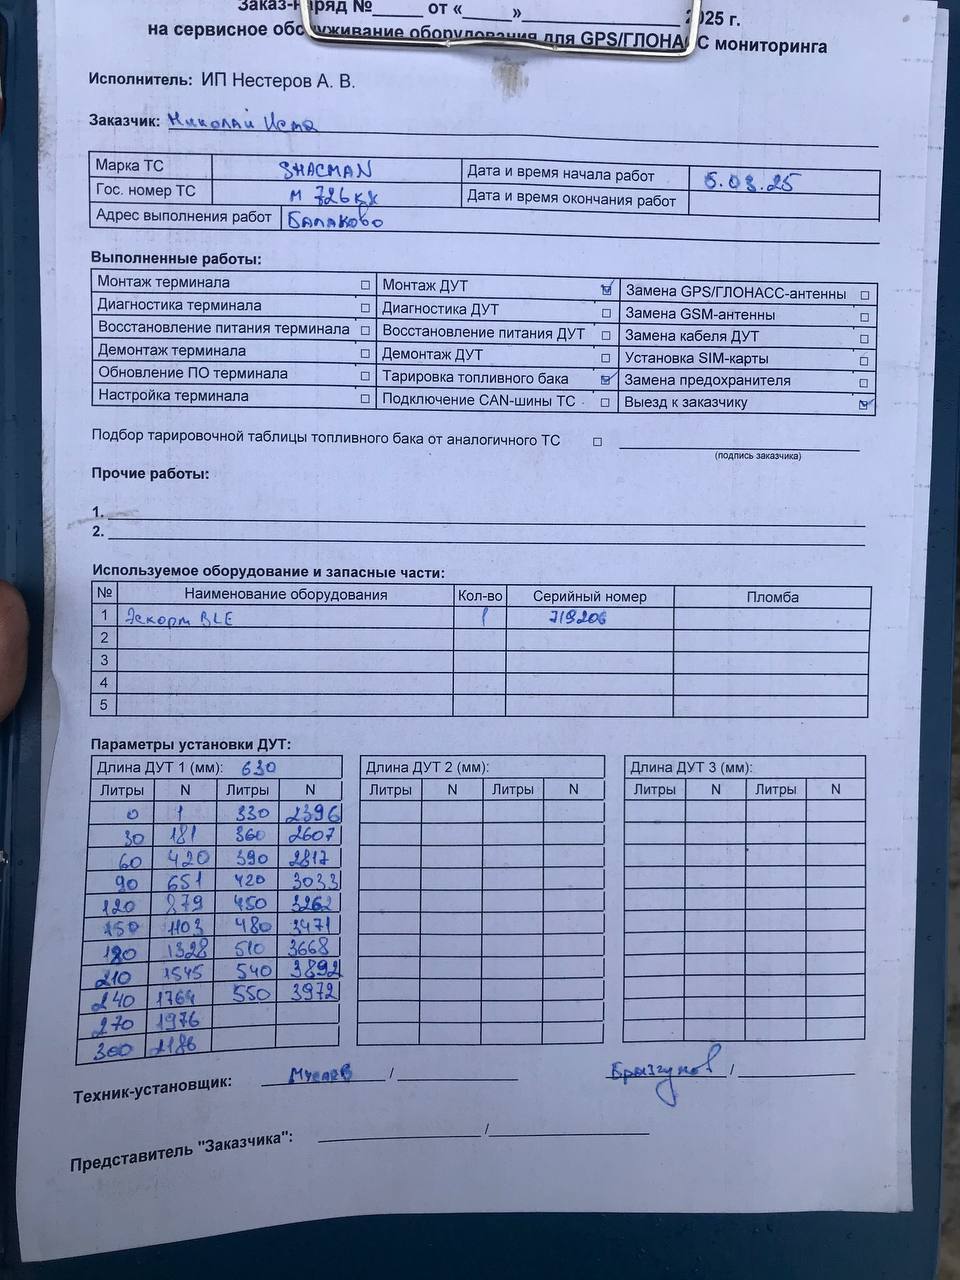 Заказ-Наряд №_____ от «_____»________________ 2025 г.
на сервисное обслуживание оборудования для GPS/ГЛОНАСС мониторинга
Исполнитель: ИП Нестеров А. В.
Заказчик: Николай
Марка ТС SHACMAN Дата и время начала работ 5.03.25
Гос. номер ТС М 726 КХ Дата и время окончания работ
Адрес выполнения работ Балаково
Выполненные работы:
Монтаж терминала ☐ Монтаж ДУТ ☑ Замена GPS/ГЛОНАСС-антенны ☐
Диагностика терминала ☐ Диагностика ДУТ ☐ Замена GSM-антенны ☐
Восстановление питания терминала ☐ Восстановление питания ДУТ ☐ Замена кабеля ДУТ ☐
Демонтаж терминала ☐ Демонтаж ДУТ ☐ Установка SIM-карты ☐
Обновление ПО терминала ☐ Тарировка топливного бака ☑ Замена предохранителя ☐
Настройка терминала ☐ Подключение CAN-шины ТС ☐ Выезд к заказчику ☑
Подбор тарировочной таблицы топливного бака от аналогичного ТС ☐
(подпись заказчика)
Прочие работы:
1.
2.
Используемое оборудование и запасные части:
№ Наименование оборудования Кол-во Серийный номер Пломба
1 Эскорт BLE 1 719206
2
3
4
5
Параметры установки ДУТ:
Длина ДУТ 1 (мм): 630 Длина ДУТ 2 (мм): Длина ДУТ 3 (мм):
Литры N Литры N Литры N Литры N Литры N Литры N
0 1 330 2396
30 181 360 2607
60 420 390 2817
90 651 420 3033
120 879 450 3262
150 1103 480 3471
180 1328 510 3668
210 1545 540 3892
240 1764 550 3972
270 1976
300 2186
Техник-установщик: / Брызгунов /
Представитель "Заказчика": /